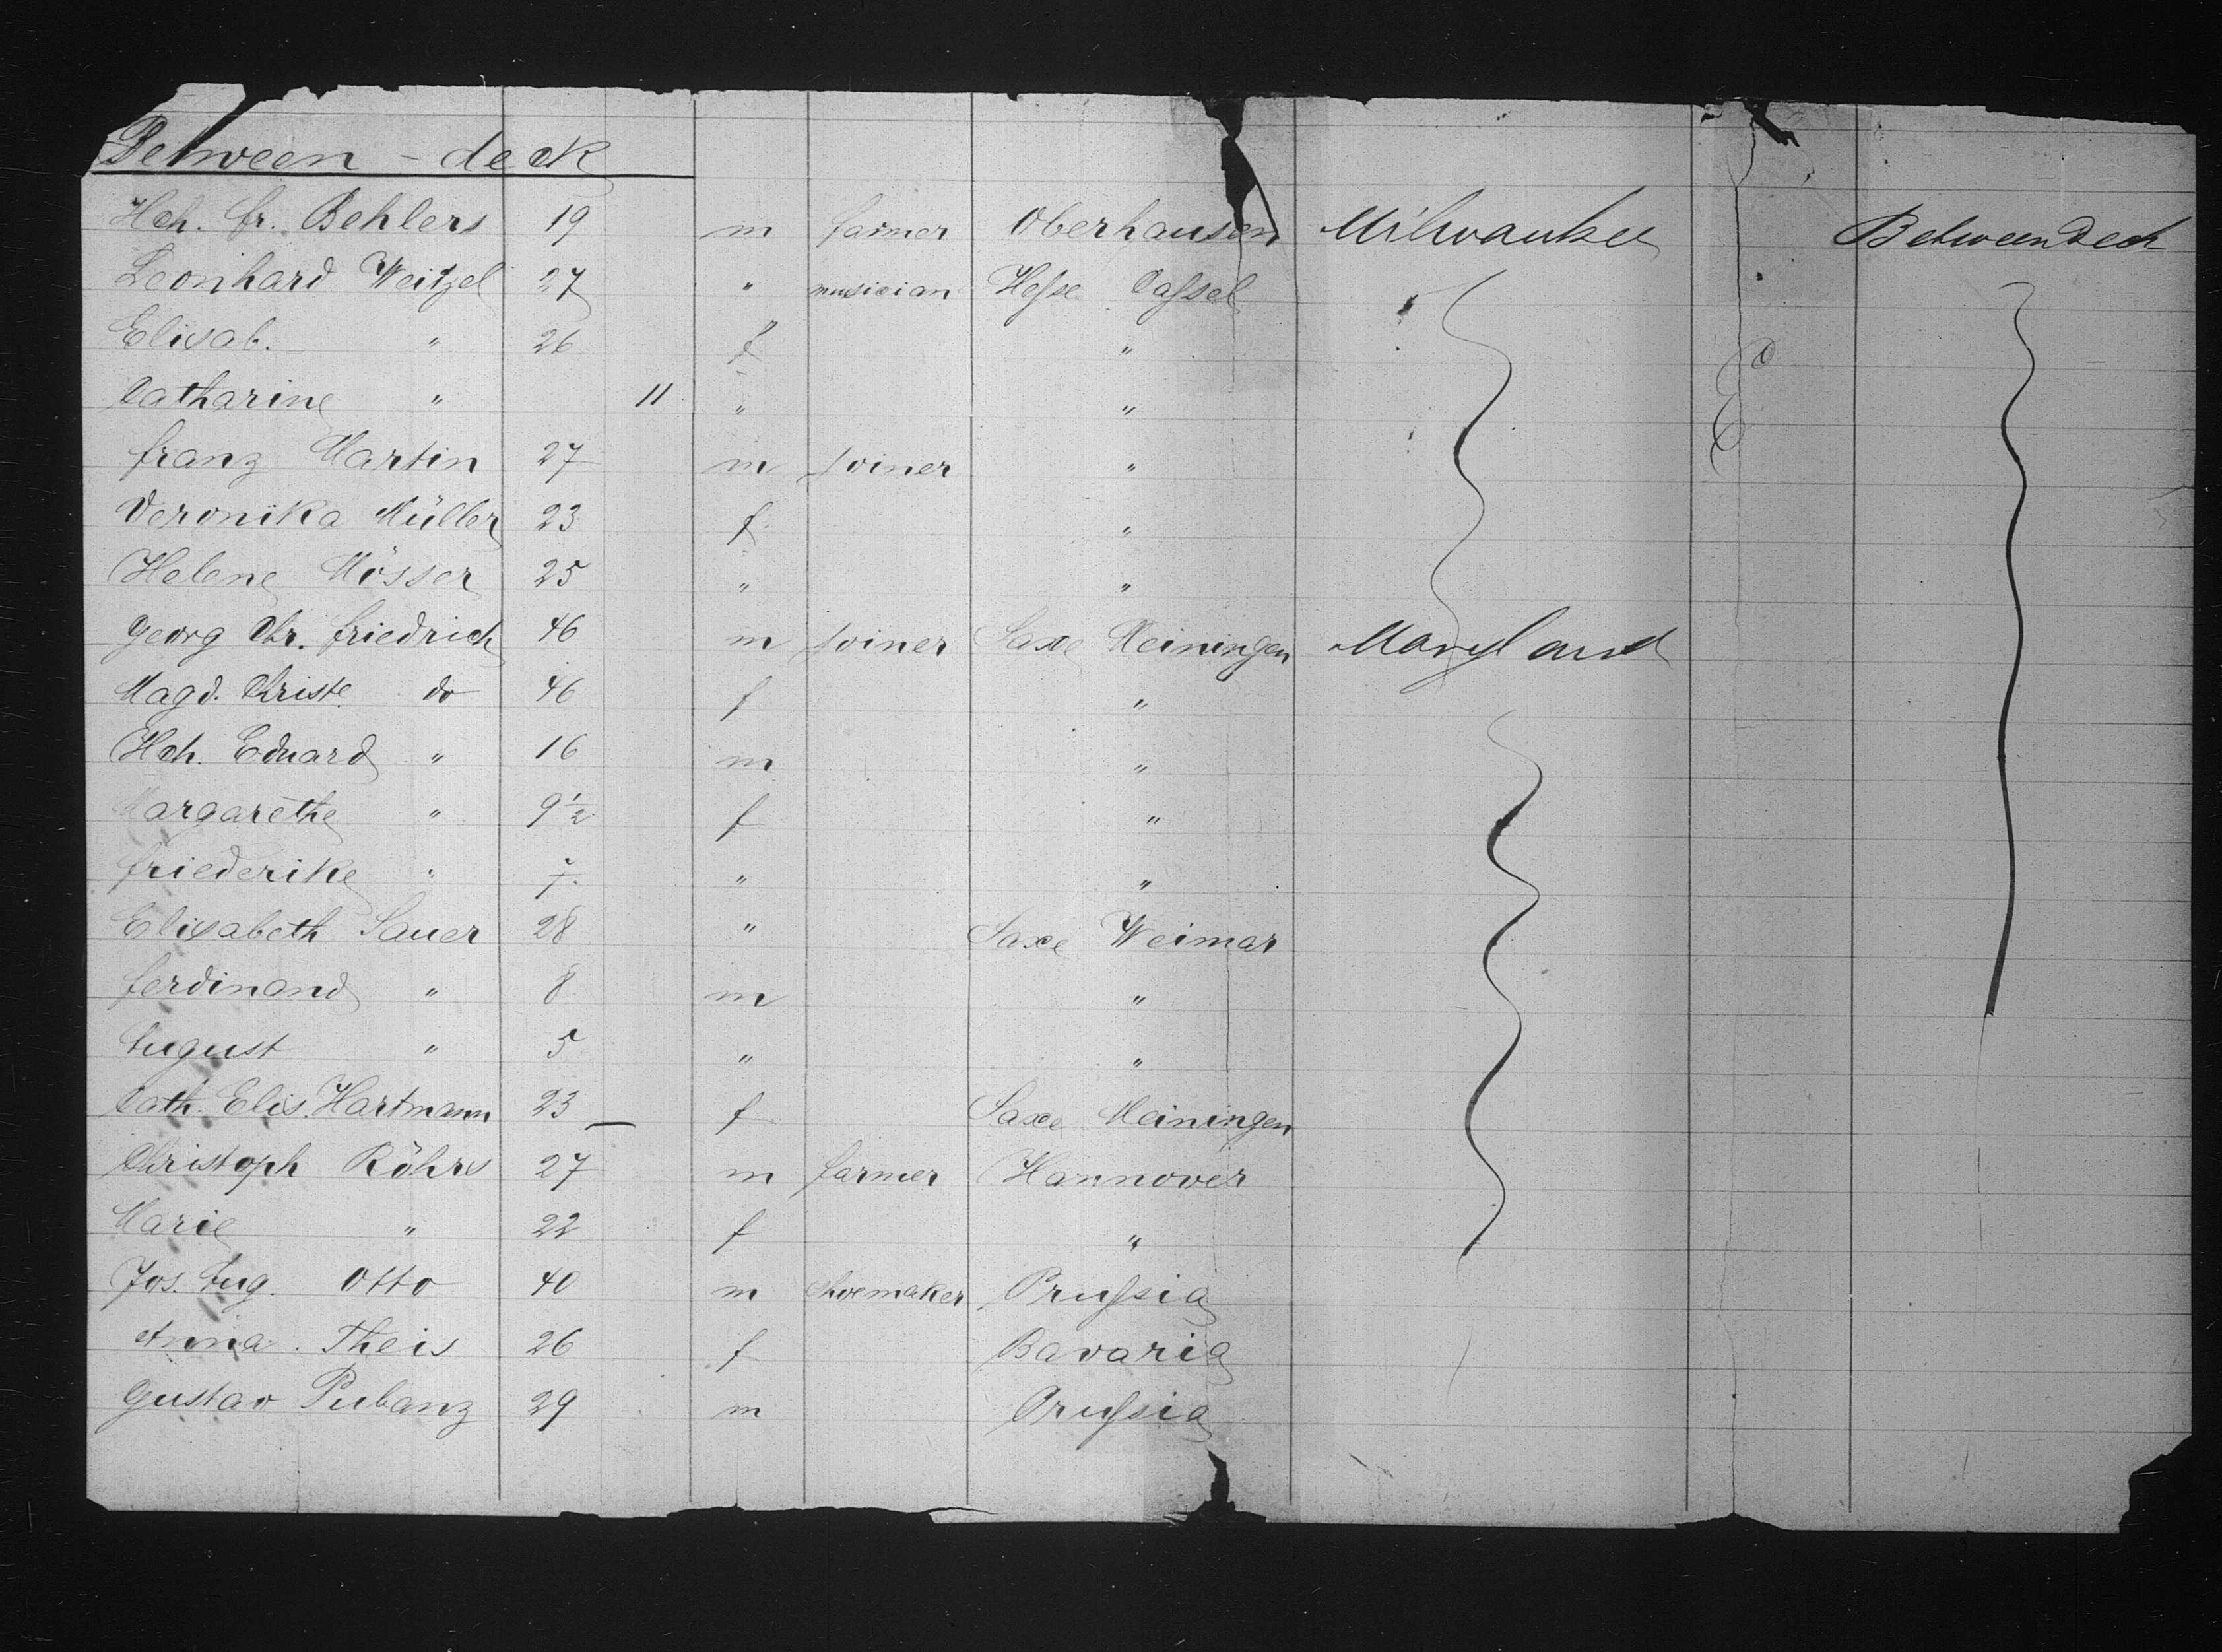 Between-deck
Hch. Fr. Behlers 19 m farmer Oberhausen Milwaukee Betweendeck
Leonhard Weitzel 27 " musician Hesse Cassel
Elisab. " 26 f "
Catharine " 11 " "
Franz Martin 27 m joiner "
Veronika Müller 23 f "
Helene Mösser 25 " "
Georg Chr. Friedrich 46 m joiner Saxe Meiningen Maryland
Magd. Christe. do 46 f "
Hch. Eduard " 16 m "
Margarethe " 9 1/2 f "
Friederike " 7. " "
Elisabeth Sauer 28 " Saxe Weimar
Ferdinand " 8 m "
August " 5 " "
Cath. Elis. Hartmann 23 — f Saxe Meiningen
Christoph Röhrs 27 m farmer Hannover
Marie " 22 f "
Jos. Aug. Otto 40 m shoemaker Prussia
Anna Theis 26 f Bavaria
Gustav Pubanz 29 m Prussia